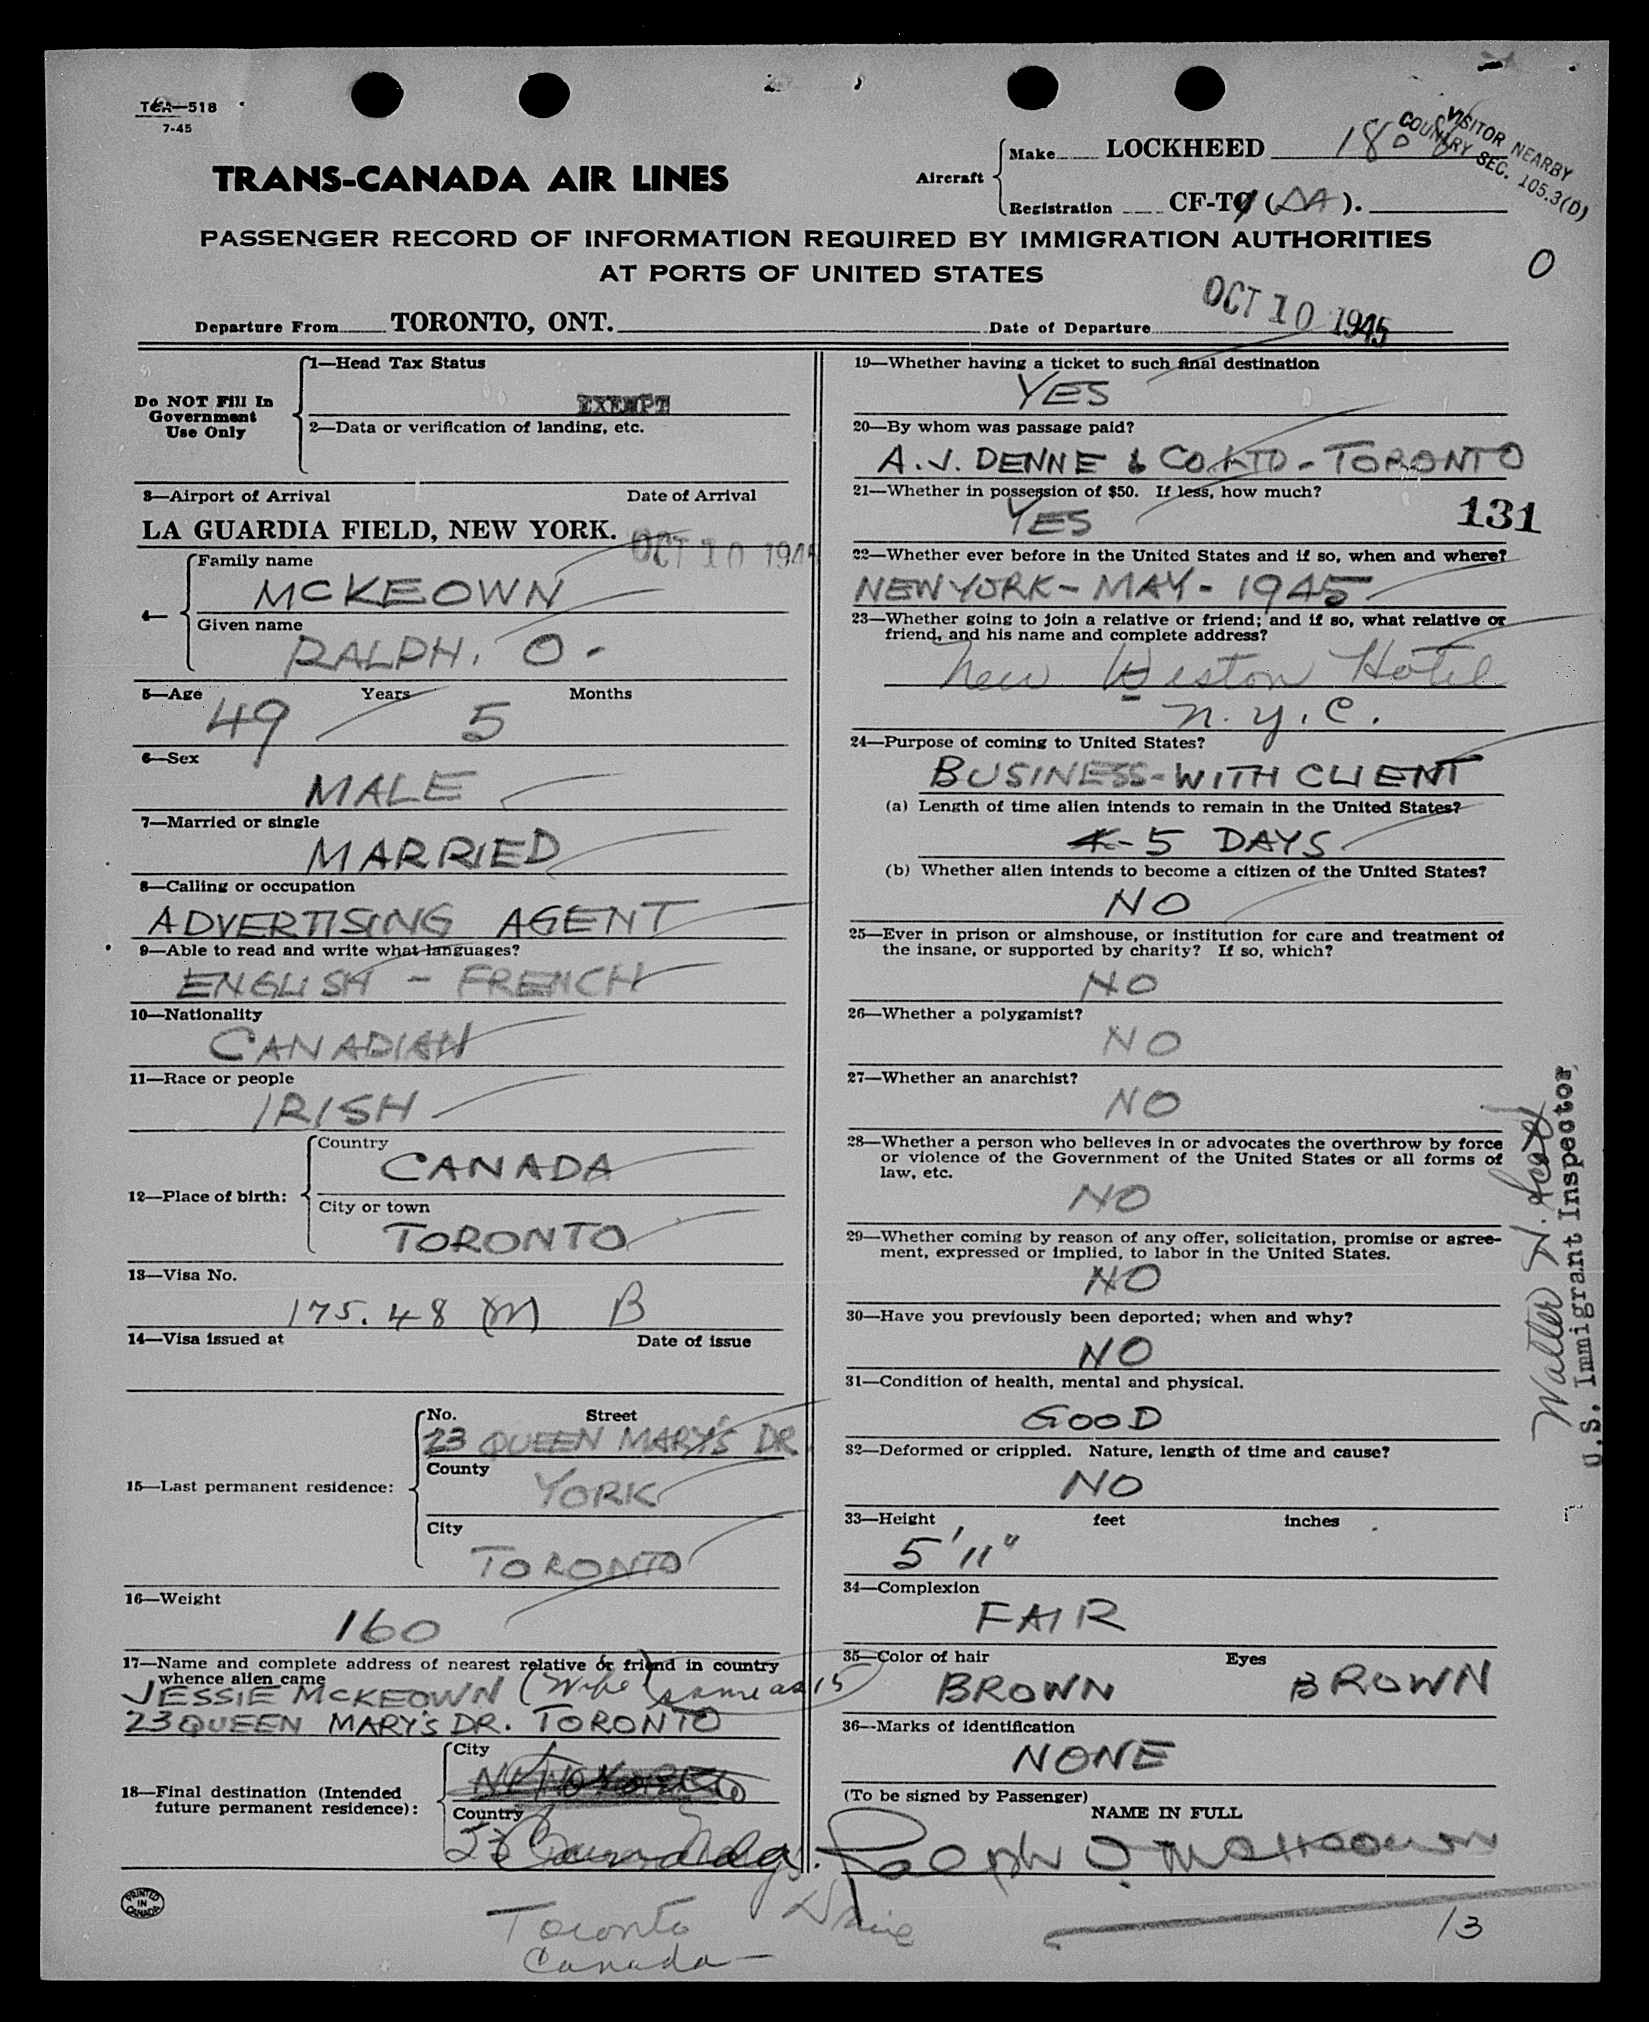 TCA—518
7-45
TRANS-CANADA AIR LINES
Aircraft
Make LOCKHEED 1808
Registration CF-T (DA).
VISITOR NEARBY
COUNTRY SEC. 105.3(D)
PASSENGER RECORD OF INFORMATION REQUIRED BY IMMIGRATION AUTHORITIES
AT PORTS OF UNITED STATES
O
Departure From TORONTO, ONT. Date of Departure OCT 10 1945
Do NOT Fill In
Government
Use Only
1—Head Tax Status
EXEMPT
2—Data or verification of landing, etc.
3—Airport of Arrival Date of Arrival
LA GUARDIA FIELD, NEW YORK. OCT 10 1945
4—
Family name
MCKEOWN
Given name
RALPH. O.
5—Age Years Months
49 5
6—Sex
MALE
7—Married or single
MARRIED
8—Calling or occupation
ADVERTISING AGENT
9—Able to read and write what languages?
ENGLISH - FRENCH
10—Nationality
CANADIAN
11—Race or people
IRISH
12—Place of birth:
Country
CANADA
City or town
TORONTO
13—Visa No.
175.48 (M) B
14—Visa issued at Date of issue
15—Last permanent residence:
No. Street
23 QUEEN MARY'S DR.
County
YORK
City
TORONTO
16—Weight
160
17—Name and complete address of nearest relative or friend in country
whence alien came
JESSIE MCKEOWN (Wife) same as 15
23 QUEEN MARY'S DR. TORONTO
18—Final destination (Intended
future permanent residence):
City
NEW YORK
Country
23 Canada
Toronto Drive
Canada —
PRINTED
IN
CANADA
19—Whether having a ticket to such final destination
YES
20—By whom was passage paid?
A.J. DENNE & CO LTD - TORONTO
21—Whether in possession of $50. If less, how much?
YES
131
22—Whether ever before in the United States and if so, when and where?
NEW YORK - MAY - 1945
23—Whether going to join a relative or friend; and if so, what relative or
friend, and his name and complete address?
New Weston Hotel
N.Y.C.
24—Purpose of coming to United States?
BUSINESS - WITH CLIENT
(a) Length of time alien intends to remain in the United States?
4-5 DAYS
(b) Whether alien intends to become a citizen of the United States?
NO
25—Ever in prison or almshouse, or institution for care and treatment of
the insane, or supported by charity? If so, which?
NO
26—Whether a polygamist?
NO
27—Whether an anarchist?
NO
28—Whether a person who believes in or advocates the overthrow by force
or violence of the Government of the United States or all forms of
law, etc.
NO
29—Whether coming by reason of any offer, solicitation, promise or agree-
ment, expressed or implied, to labor in the United States.
NO
30—Have you previously been deported; when and why?
NO
31—Condition of health, mental and physical.
GOOD
32—Deformed or crippled. Nature, length of time and cause?
NO
33—Height feet inches
5' 11"
34—Complexion
FAIR
35—Color of hair Eyes
BROWN BROWN
36—Marks of identification
NONE
(To be signed by Passenger)
NAME IN FULL
Ralph O McKeown
13
Walter H.
U.S. Immigrant Inspector